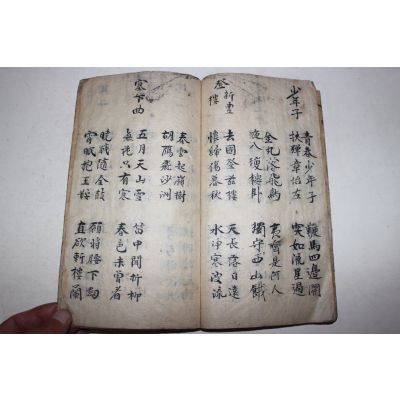 少年子
青春少年子 鞍馬四邊開
挾彈章台左 突如流星過
金丸落飛鳥 夷齊是何人
夜入瓊樓卧 獨守西山餓
登新豊樓
去國登茲樓 天長落日遠
懷歸傷暮秋 水淨寒波流
秦雲起嶺樹
胡鴈飛沙洲
塞下曲
五月天山雪 笛中聞折柳
無花只有寒 春色未曾看
曉戰隨金鼓 願將腰下劒
宵眠抱玉鞍 直欲斬樓蘭